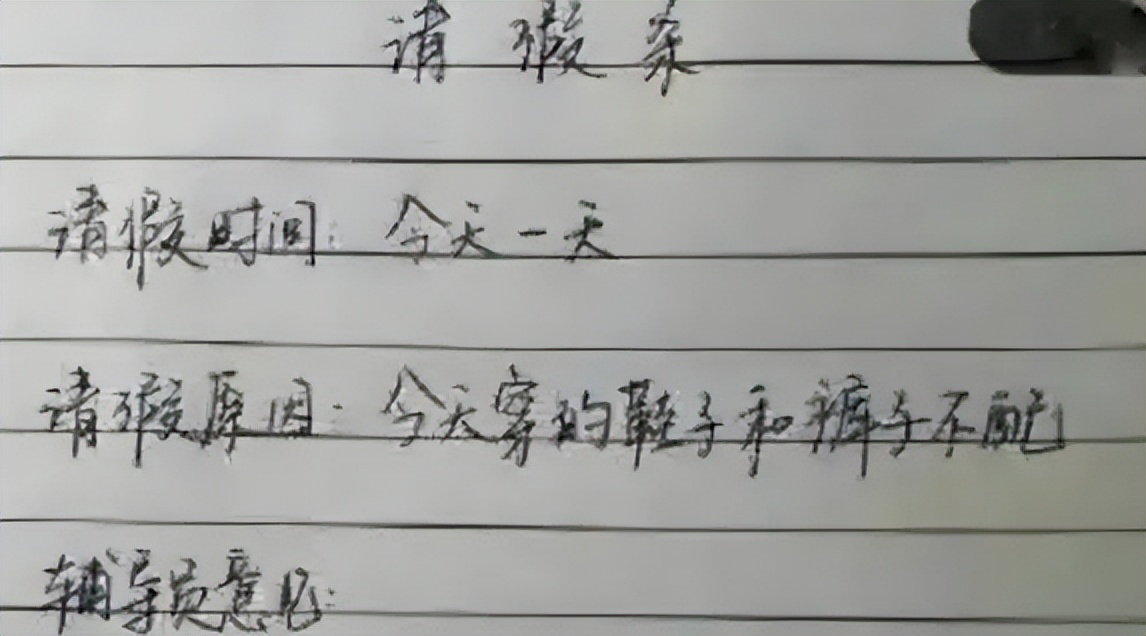 请瑕条
请假时间: 今天一天
请瑕原因: 今天穿的鞋子和裤子不配
辅导员意见: